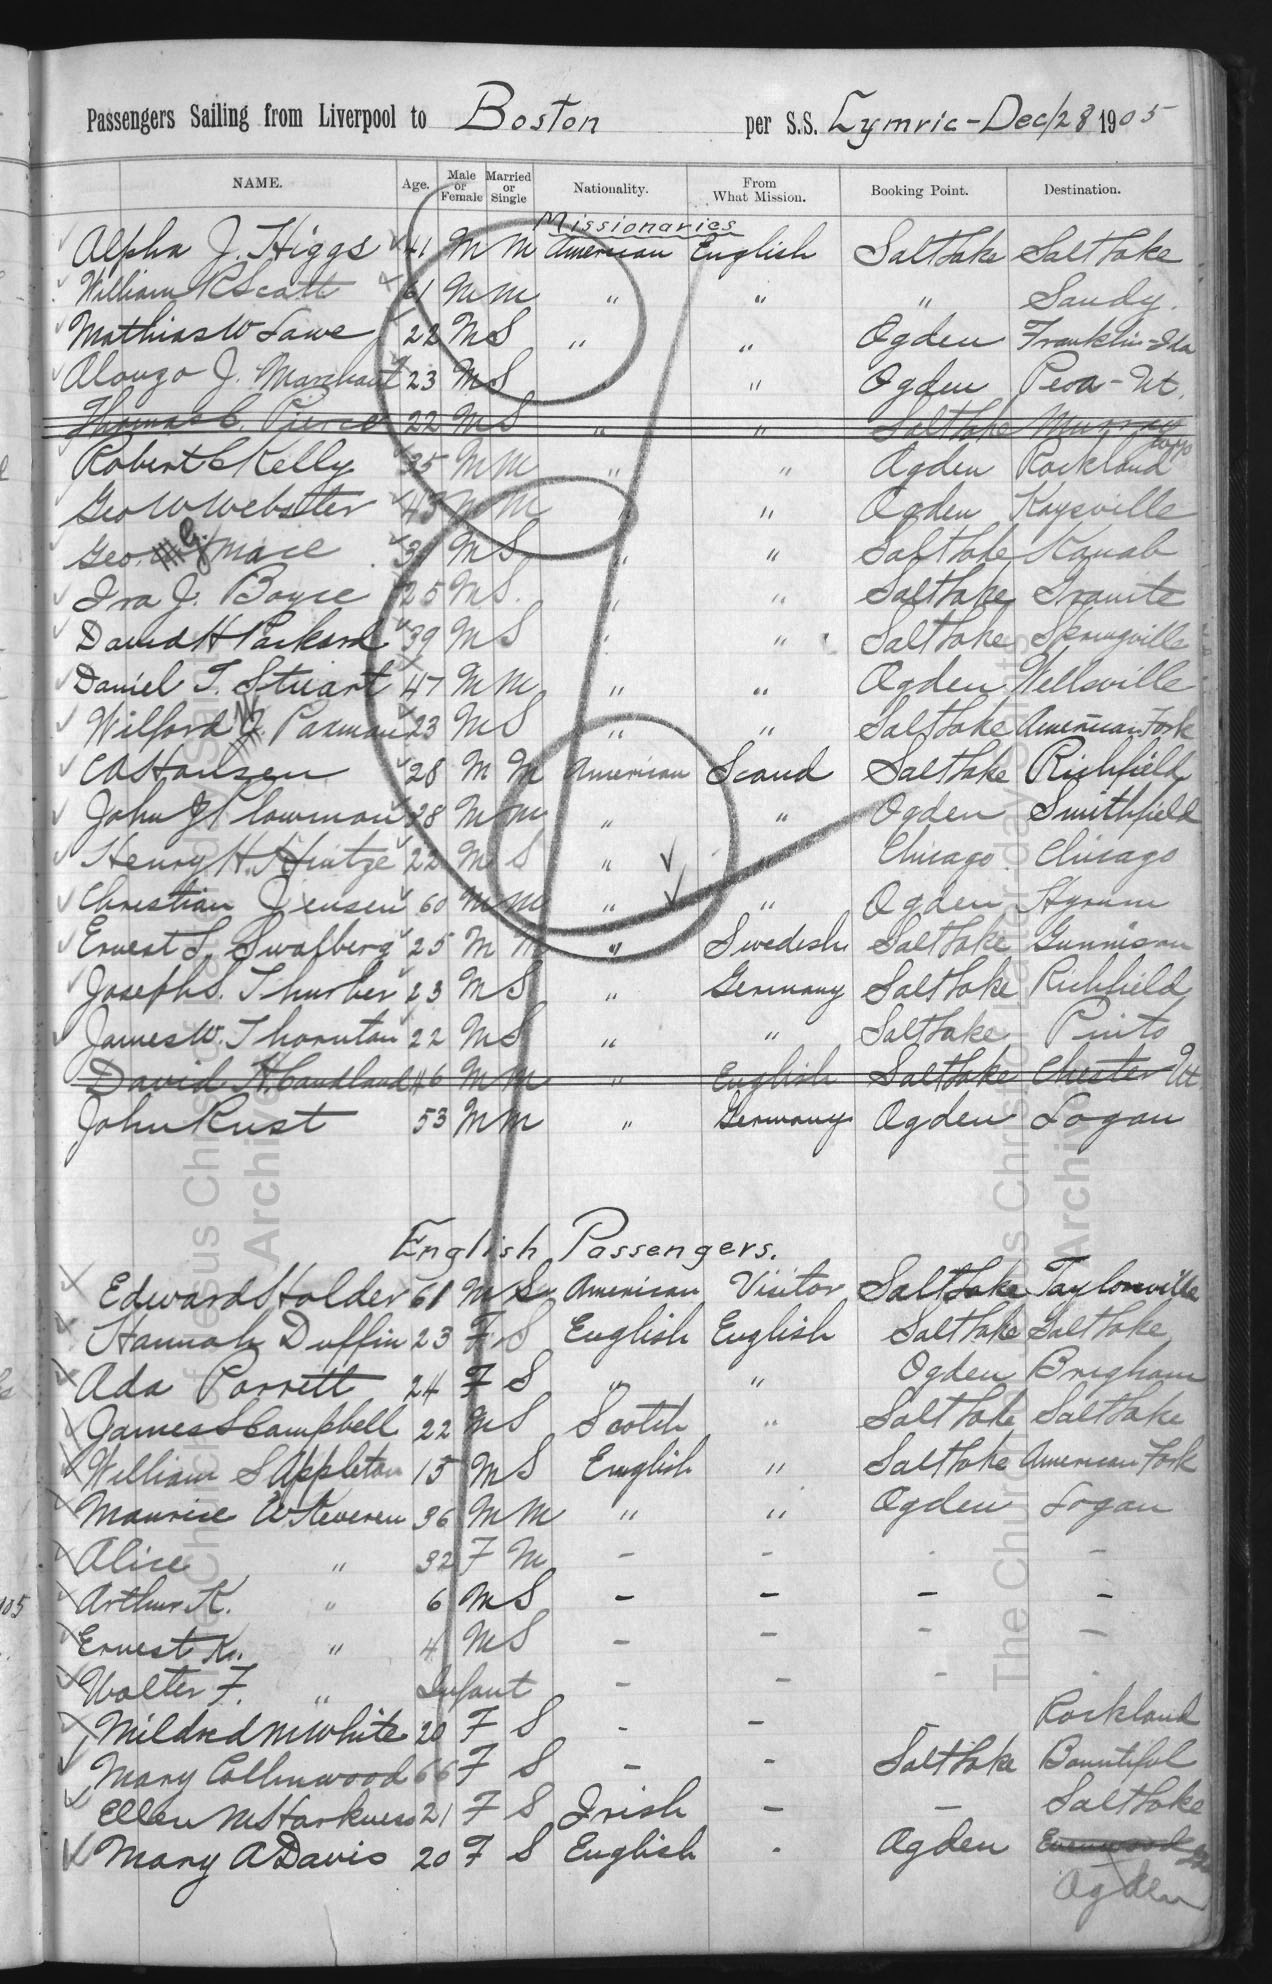 Passengers Sailing from Liverpool to Boston per S.S. Cymric - Dec/28 1905
NAME. Age. Male or Female Married or Single Nationality. From What Mission. Booking Point. Destination.
Missionaries
Alpha J. Higgs 41 M M American English Salt Lake Salt Lake
William R Scott 61 M M " " " Sandy.
Mathias W Lowe 22 M S " " Ogden Franklin - Ida
Alonzo J. Marchant 23 M S " Ogden Peoa - Ut.
Thomas C. Pierce 22 M S " " Salt Lake Murray
Robert C Kelly 35 M M " " Ogden Rockland
Geo W Webster 43 M M " " Ogden Kaysville
Geo. G. Mace 39 M S " " Salt Lake Kanab
Ira J. Boyce 25 M S. " " Salt Lake Granite
David H Packard 39 M S " " Salt Lake Springville
Daniel T. Stuart 47 M M " " Ogden Wellsville
Wilford W. Parman 23 M S " " Salt Lake American Fork
C A Hansen 28 M M American Scand Salt Lake Richfield
John J Plowman 28 M M " " Ogden Smithfield
Henry H. Hintze 22 M S " " Chicago Chicago
Christian Jensen 60 M M " " Ogden Hyrum
Ernest L. Swalberg 25 M M " Swedish Salt Lake Gunnison
Joseph S. Thurber 23 M S " Germany Salt Lake Richfield
James W. Thornton 22 M S " " Salt Lake Pinto
David H. Candland 46 M M " English Salt Lake Chester Ut
John Rust 53 M M " Germany Ogden Logan
English Passengers.
Edward Holder 61 M S American Visitor Salt Lake Taylorsville
Hannah Duffin 23 F S English English Salt Lake Salt Lake
Ada Parrett 24 F S " " Ogden Brigham
James S Campbell 22 M S Scotch " Salt Lake Salt Lake
William S Appleton 15 M S English " Salt Lake American Fork
Maurice W Keveren 36 M M " " Ogden Logan
Alice " 32 F M - - - -
Arthur K. " 6 M S - - - -
Ernest K. " 4 M S - - - -
Walter F. " Infant - - - -
Mildred M White 20 F S - - - Rockland
Mary Collinwood 66 F S - - Salt Lake Bountiful
Ellen M Harkness 21 F S Irish - - Salt Lake
Mary A Davis 20 F S English - Ogden
Ogden
The Church of Jesus Christ of Latter-day Saints
Archives
The Church of Jesus Christ of Latter-day Saints
Archives